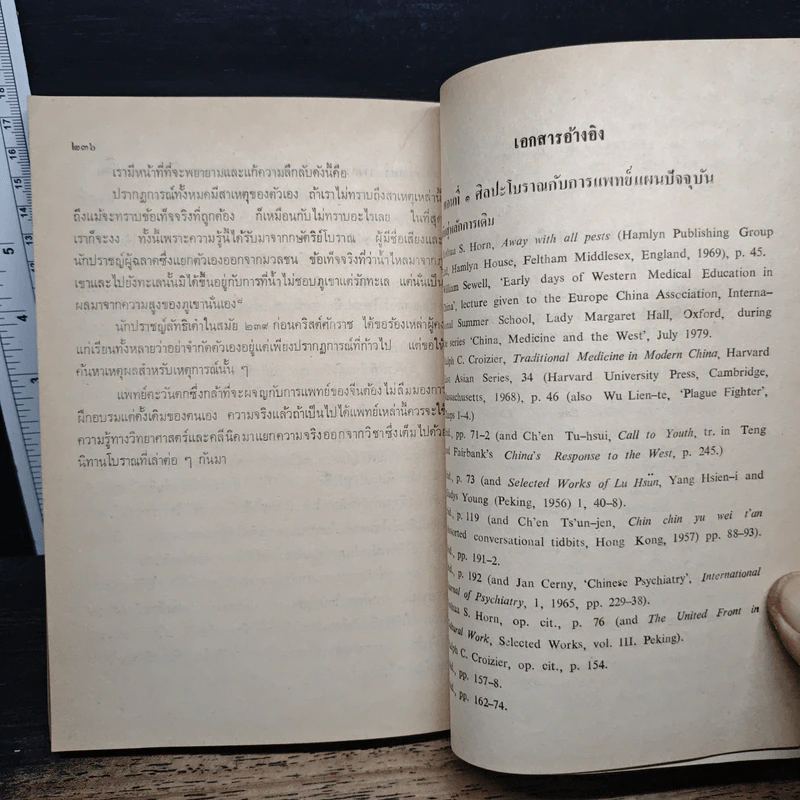 ๒๓๖
เรามีหน้าที่ที่จะพยายามและแก้ความลึกลับดังนี้คือ
ปรากฏการณ์ทั้งหมดมีสาเหตุของตัวเอง ถ้าเราไม่ทราบถึงสาเหตุเหล่านี้
ถึงแม้จะทราบข้อเท็จจริงที่ถูกต้อง ก็เหมือนกับไม่ทราบอะไรเลย ในที่สุด
เราก็จะงง ทั้งนี้เพราะความรู้นี้ได้รับมาจากกษัตริย์โบราณ ผู้มีชื่อเสียงและ
นักปราชญ์ผู้ฉลาดซึ่งแยกตัวเองออกจากมวลชน ข้อเท็จจริงที่ว่าน้ำไหลมาจาก
เขาและไปยังทะเลนั้นมิได้ขึ้นอยู่กับการที่น้ำไม่ชอบภูเขาแต่รักทะเล แต่นั่นเป็น
ผลมาจากความสูงของภูเขานั่นเอง
นักปราชญ์ลัทธิเต๋าในสมัย ๒๓๙ ก่อนคริสต์ศักราช ได้ขอร้องเหล่าผู้คง
แก่เรียนทั้งหลายว่าอย่าจำกัดตัวเองอยู่แต่เพียงปรากฏการณ์ที่ก้าวไป แต่ขอให้
ค้นหาเหตุผลสำหรับเหตุการณ์นั้น ๆ
แพทย์ตะวันตกซึ่งกล้าที่จะผจญกับการแพทย์ของจีนต้องไม่ลืมมองการ
ฝึกอบรมแต่ดั้งเดิมของตนเอง ความจริงแล้วถ้าเป็นไปได้แพทย์เหล่านี้ควรจะใช้
ความรู้ทางวิทยาศาสตร์และคลีนิคมาแยกความจริงออกจากวิชาซึ่งเต็มไปด้วย
นิทานโบราณที่เล่าต่อ ๆ กันมา
เอกสารอ้างอิง
ตอนที่ ๑ ศิลปะโบราณกับการแพทย์แผนปัจจุบัน
หลักการเดิม
S. Horn, Away with all pests (Hamlyn Publishing Group
Hamlyn House, Feltham Middlesex, England, 1969), p. 45.
Sewell, 'Early days of Western Medical Education in
China', lecture given to the Europe China Association, Interna-
Summer School, Lady Margaret Hall, Oxford, during
series 'China, Medicine and the West', July 1979.
C. Croizier, Traditional Medicine in Modern China, Harvard
East Asian Series, 34 (Harvard University Press, Cambridge,
1968), p. 46 (also Wu Lien-te, 'Plague Fighter',
1-4.)
pp. 71-2 (and Ch'en Tu-hsui, Call to Youth, tr. in Teng
and Fairbank's China's Response to the West, p. 245.)
p. 73 (and Selected Works of Lu Hsün, Yang Hsien-i and
Young (Peking, 1956) 1, 40-8).
p. 119 (and Ch'en Ts'un-jen, Chin chin yu wei t'an
conversational tidbits, Hong Kong, 1957) pp. 88-93).
pp. 191-2.
p. 192 (and Jan Cerny, 'Chinese Psychiatry', International
Journal of Psychiatry, 1, 1965, pp. 229-38).
S. Horn, op. cit., p. 76 (and The United Front in
Work, Selected Works, vol. III. Peking).
C. Croizier, op. cit., p. 154.
pp. 157-8.
pp. 162-74.
5
18
17
16
15
14
13